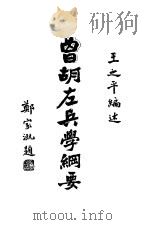 王之平編述
曾胡左兵學綱要
鄭家泓題
PDG
www.mtoou.info